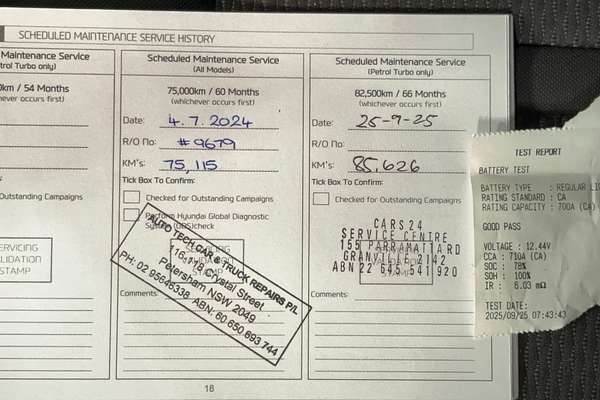 SCHEDULED MAINTENANCE SERVICE HISTORY
Maintenance Service
Petrol Turbo only)
km / 54 Months
whichever occurs first)
Outstanding Campaigns
SERVICING
VALIDATION
STAMP
Scheduled Maintenance Service
(All Models)
75,000km / 60 Months
(whichever occurs first)
Date: 4.7.2024
R/O No: #9679
KM's: 75,115
Tick Box To Confirm:
Checked for Outstanding Campaigns
Perform Hyundai Global Diagnostic
System (GDS)check
AUTO TECH CAR & TRUCK REPAIRS P/L
Crystal Street
Petersham NSW 2049
PH: 02 95646338 ABN: 60 650 693 744
Comments:
Scheduled Maintenance Service
(Petrol Turbo only)
82,500km / 66 Months
(whichever occurs first)
Date: 25-9-25
R/O No:
KM's: 85,626
Tick Box To Confirm:
Checked for Outstanding Campaigns
CARS24
SERVICE CENTRE
155 PARRAMATTARD
GRANVILLE 2142
ABN 22 645 541 920
Comments:
18
TEST REPORT
BATTERY TEST
BATTERY TYPE : REGULAR LI
RATING STANDARD : CA
RATING CAPACITY : 700A (CA)
GOOD PASS
VOLTAGE : 12.44V
CCA : 710A (CA)
SOC : 78%
SOH : 100%
IR : 6.03 mΩ
TEST DATE:
2025/09/25 07:43:43